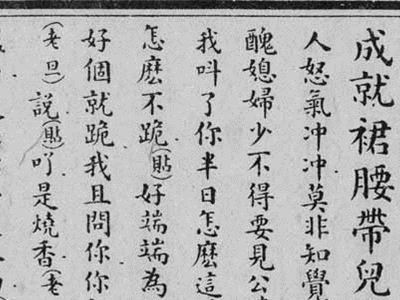 成就裙腰帶兒
人怒氣冲冲莫非知覺
醜媳婦少不得要見公
我呌了你半日怎麽這
怎麽不跪(貼)好端端為
好個就跪我且問你你
(老旦)說(貼)吖是燒香(老